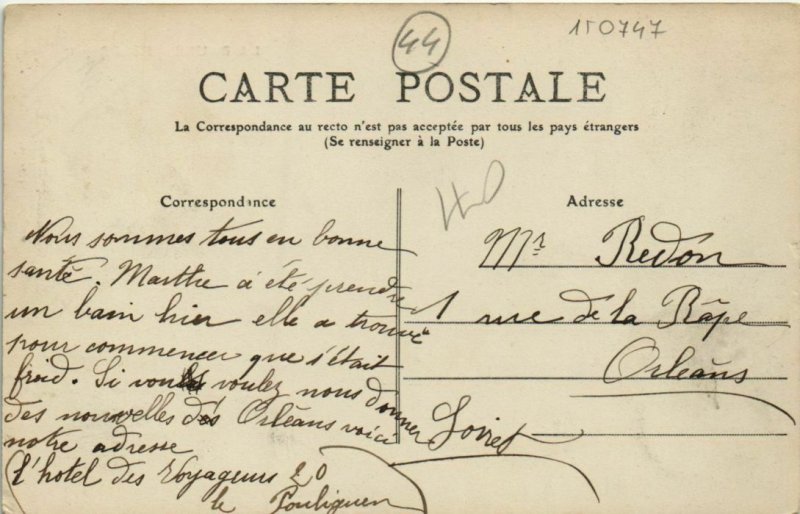 44
150747
CARTE POSTALE
La Correspondance au recto n'est pas acceptée par tous les pays étrangers
(Se renseigner à la Poste)
Correspondance
Nous sommes tous en bonne
santé. Marthe a été prendre
un bain hier elle a trouvé
pour commencer que s'était
froid. Si vous voulez nous donner
des nouvelles des Orléans voici
notre adresse
l'hotel des Voyageurs 20
le Pouliguen
Adresse
Mr Redon
1 rue de la Râpe
Orléans
Loiret